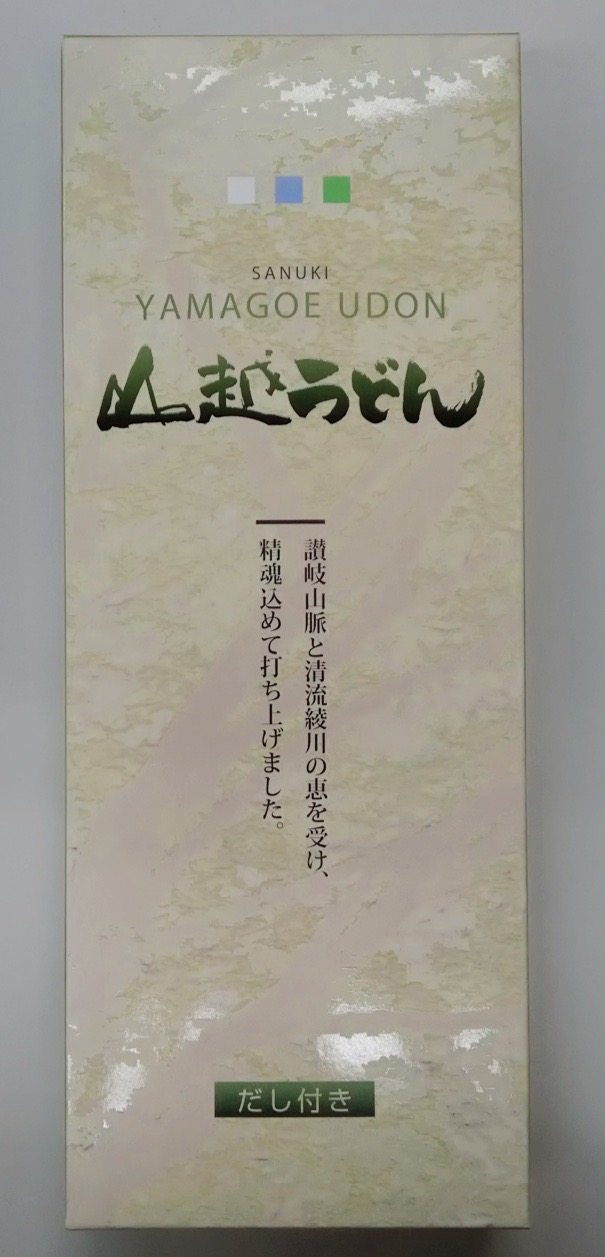 SANUKI
YAMAGOE UDON
山越うどん
讃岐山脈と清流綾川の恵を受け、
精魂込めて打ち上げました。
だし付き